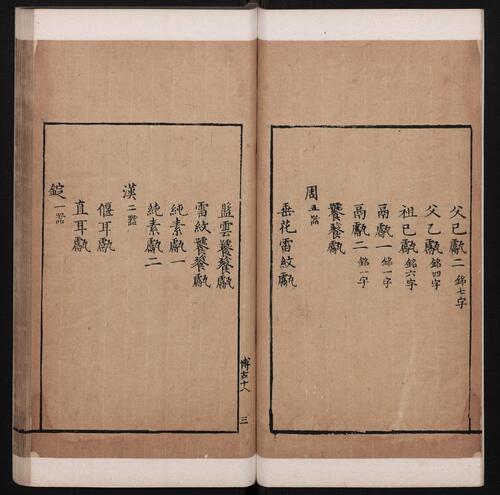 父己甗二 銘七字
父乙甗 銘四字
祖己甗 銘六字
鬲甗一 銘一字
鬲甗二 銘一字
饕餮甗
周 五器
垂花雷紋甗
盤雲饕餮甗
雷紋饕餮甗
純素甗一
純素甗二
漢 二器
偃耳甗
直耳甗
錠 一器
博古十八 三